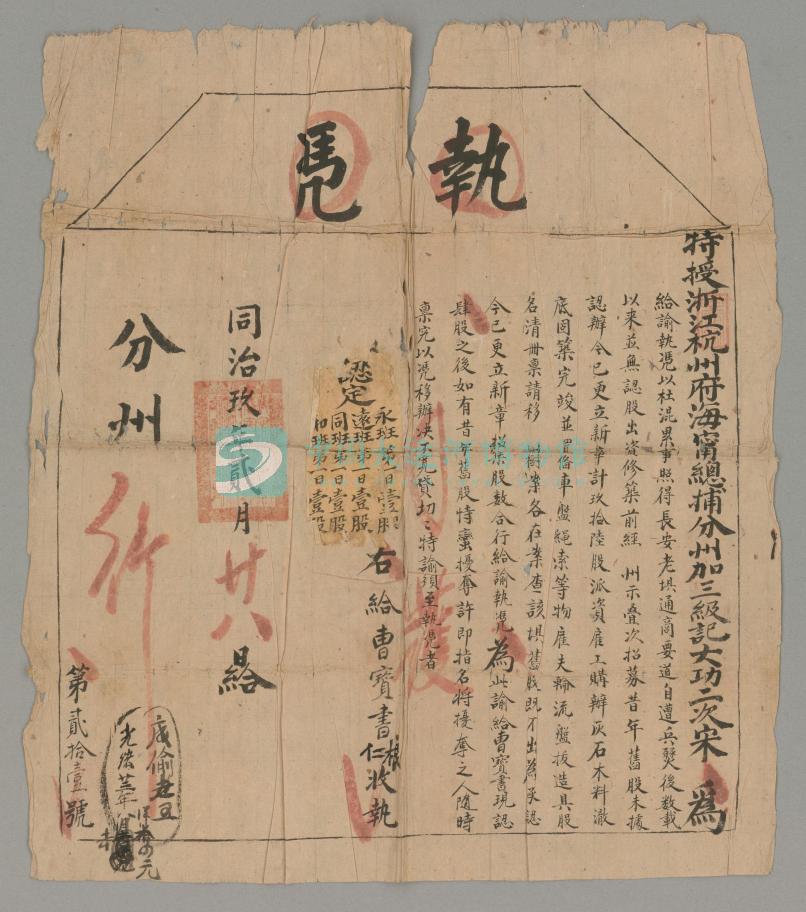 執憑
特授浙江杭州府海甯總捕分州加三級記大功二次宋 為
給諭執憑以杜混累事照得長安老垻通商要道自遭兵燹後数載
以來並無認股出資修築前經 州示叠次招募昔年舊股未據
認辦今已更立新章計玖拾陸股派資雇工購辦灰石木料澈
底囘築完竣並置俻車盤繩索等物雇夫輪流盤拔造具股
名清冊禀請移 在案各在案查該垻舊股既不出為承認
今已更立新章 股数合行給諭執憑為此諭給曹寳書現認
肆股之後如有昔年舊股恃蠻擾奪許即指名将擾奪之人隨時
禀究以憑移辦决不寛貸切〻特諭須至執憑者
認定
永班第 日壹股
遠班第一日壹股
同班第 日壹股
和班第一日壹股
右給曹寳書 仁 收執
同治玖年貳月廿八 給
分州 行
第貳拾壹號
光緒 年
元